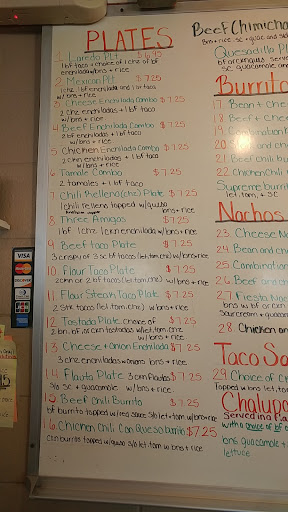 PLATES
1 Laredo Plt $6.95
1 bf taco + choice of 1 chz of bf
enchilada w/bns + rice
2 Mexican Plt $7.25
1 chz 1 bf enchilada and 1 bf taco
w/bns + rice
3 Cheese Enchilada Combo $7.25
2 chz enchiladas + 1 bf taco
w/bns + rice
4 Beef Enchilada Combo $7.25
2 bf enchiladas + 1 bf taco
w/bns + rice
5 Chicken Enchilada Combo $7.25
2 chn enchiladas + 1 bf taco
w/bns + rice
6 Tamale Combo $7.25
2 tamales + 1 bf taco
7 Chili Relleno (chz) Plate $7.25
1 chili relleno topped w/queso
bns + rice
8 Three Amigos $7.25
1 bf 1 chz 1 ckn enchilada w/bns + rice
9 Beef taco Plate $7.25
3 crispy or 3 sc bf tacos (let.tom.chz) w/bns + rice
10 Flour Taco Plate $7.25
2 chn or 2 bf tacos (let.tom.chz) w/bns + rice
11 Flour Steak Taco Plate $7.25
2 Stk tacos (let.tom.chz) w/bns + rice
12 Tostada Plate choice of $7.25
2 bn. bf. or ckn tostadas w/let.tom.chz
w/bns + rice
13 Cheese + Onion Enchilada $7.25
3 chz enchiladas w/onions bns + rice
14 Flauta Plate 3 ckn flautas $7.25
s/o sc + guacamole w/bns + rice
15 Beef Chili Burrito $7.25
bf burrito topped w/red sauce s/o let+tom w/bns+rice
16 Chicken Chili Con Queso burrito $7.25
chn burrito topped w/queso s/o let.tom w/bns + rice
Beef Chimicha
Bns + rice sc + guac and sid
Quesadilla Pl
sc guacamole an
Burrito
17 Bean + Chee
18 Beef + Chee
19 Combination
21 Beef chili bur
22 Chicken Chili
Supreme burrit
let, tom, + SC
Nachos
23 Cheese N
24 Bean and ch
25 Combination
26 Beef and ch
27 Fiesta Na
bns w/ bf or cn
Sour cream + guacam
28 Chicken an
Taco Sa
29 Choice of
Topped w/bns let, tom
Chalupa
Served in a Fla
with a choice of bf o
bns guacamole +
lettuce
VISA